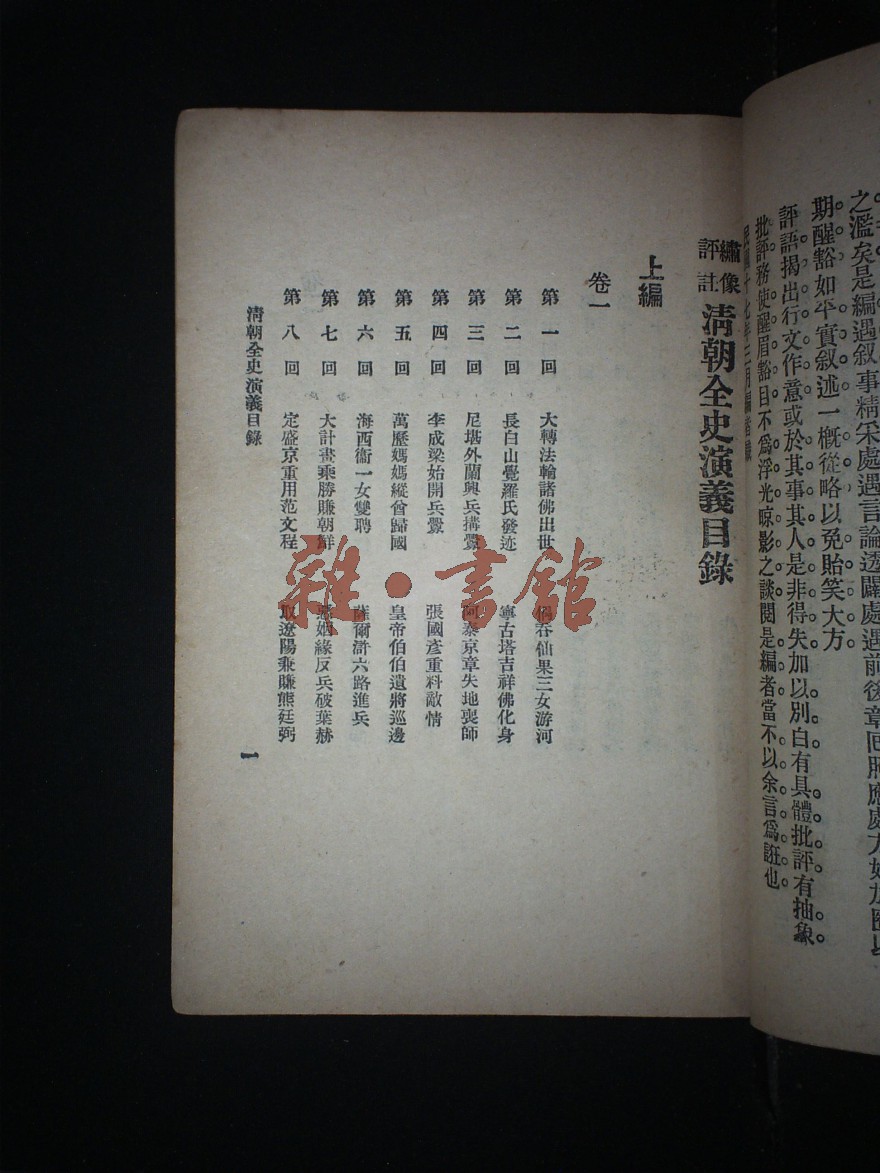 之濫矣是編遇叙事精采處遇言論透闢處遇前後章
期醒豁如平實叙述一槪從略以免貽笑大方
評語揭出行文作意或於其事其人是非得失加以別白有具體批評有抽象
批評務使醒眉豁目不爲浮光晾影之談閱是編者當不以余言爲誑也
繡像
評註
淸朝全史演義目錄
上編
卷一
第一回 大轉法輪諸佛出世 仙果三女游河
第二回 長白山覺羅氏發迹 寧古塔吉祥佛化身
第三回 尼堪外蘭興兵搆釁 阿泰京章失地喪師
第四回 李成梁始開兵釁 張國彥重料敵情
第五回 萬歷媽媽縱酋歸國 皇帝伯伯遺將巡邊
第六回 海西衞一女雙聘 薩爾滸六路進兵
第七回 大計畫乘勝賺朝鮮 姻緣反兵破葉赫
第八回 定盛京重用范文程 取遼陽兼賺熊廷弼
淸朝全史演義目錄
一
雜·書館